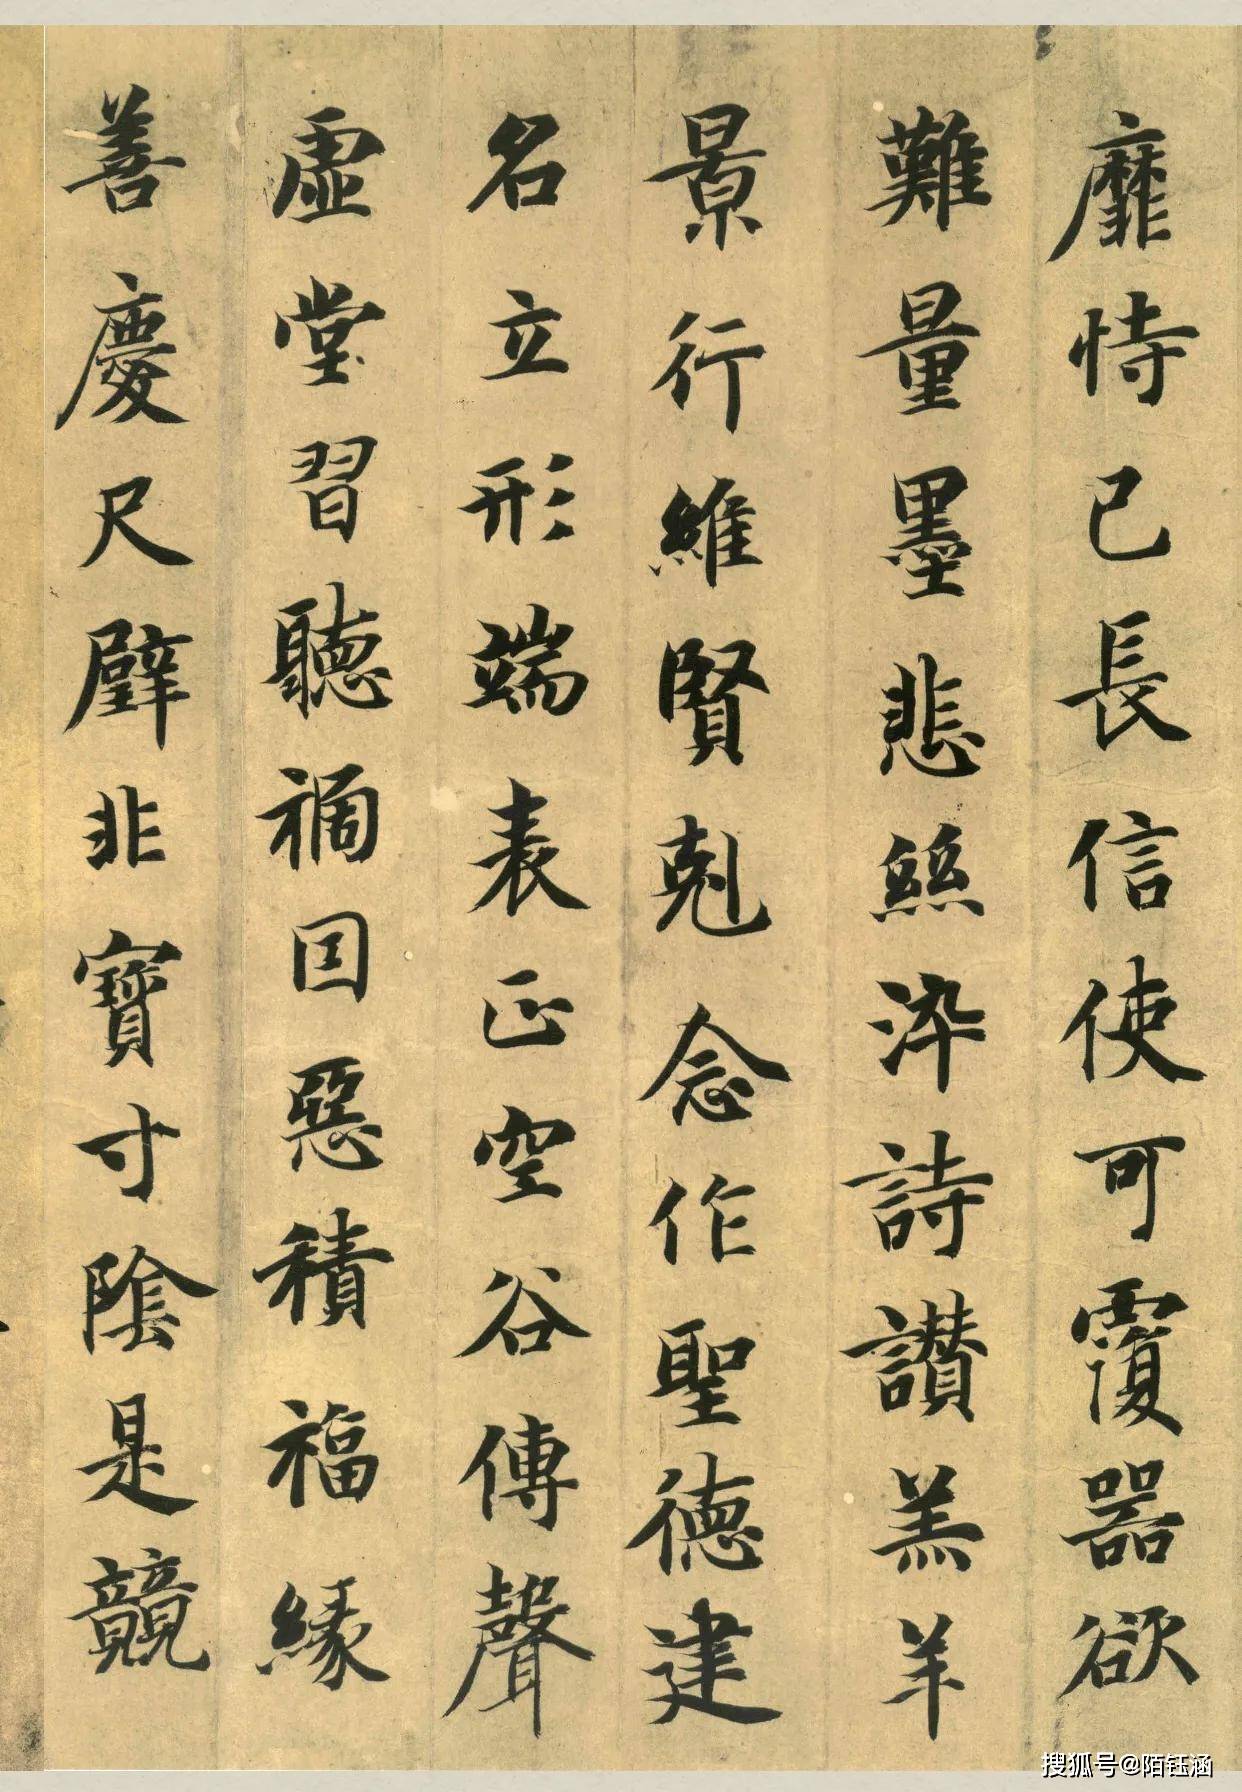 靡恃己長信使可覆器欲
難量墨悲絲淬詩讚羔羊
景行維賢剋念作聖德建
名立形端表正空谷傳聲
虛堂習聽禍因惡積福緣
善慶尺璧非寶寸陰是競
搜狐号@陌钰涵